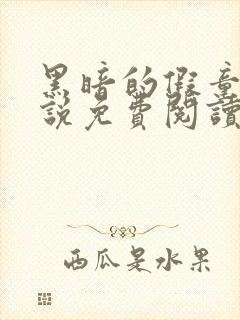 黑暗的假童
說免費閱讀
西瓜是水果